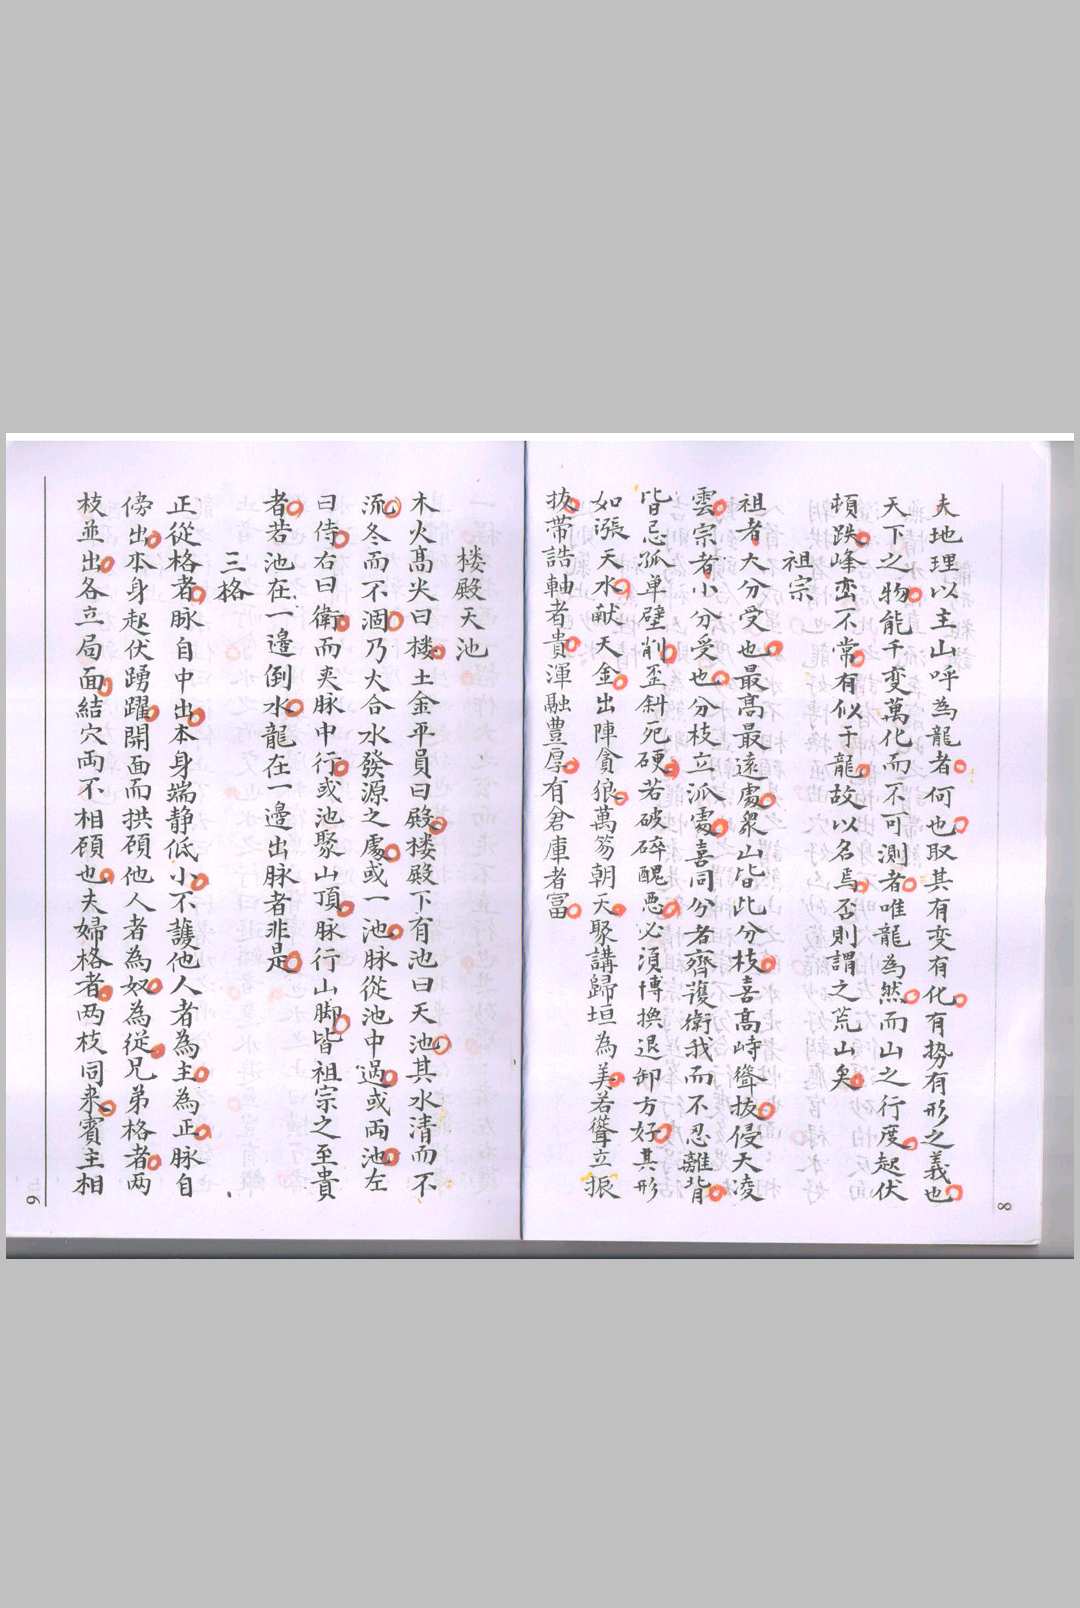 8
夫地理以主山呼為龍者何也取其有変有化有势有形之義也
天下之物能千变萬化而不可測者唯龍為然而山之行度起伏
頓跌峰峦不常有似于龍故以名焉否則謂之荒山矣
祖宗
祖者大分受也最高最遠處衆山皆此分枝喜高峙聳拔侵天凌
雲宗者小分受也分枝立派處喜同分若齊護衛我而不忍離背
皆忌孤单壁削歪斜死硬若破碎醜惡必須博换退卸方好其形
如漲天水献天金出陣貪狼萬笏朝天聚講歸垣為美若聳立振
拔帶誥軸者貴渾融豊厚有倉庫者富
楼殿天池
木火高尖曰楼土金平員曰殿楼殿下有池曰天池其水清而不
流冬而不涸乃大合水發源之處或一池脉從池中過或両池左
曰侍右曰衛而夾脉中行或池聚山頂脉行山脚皆祖宗之至貴
者若池在一邊倒水龍在一邊出脉者非是
三格
正從格者脉自中出本身端静低小不護他人者為主為正脉自
傍出本身起伏踴躍開面而拱顾他人者為奴為従兄弟格者両
枝並出各立局面結穴両不相顾也夫婦格者两枝同来賓主相
9